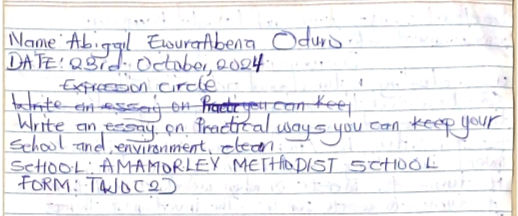 Name: Abigail EwuraAbena Oduro
DATE: 23rd October, 2024
Expression circle
Write an essay on Practi you can keej
Write an essay on Practical ways you can keep your
School and environment clean.
SCHOOL: AMAMORLEY METHODIST SCHOOL
FORM: TWO (2)